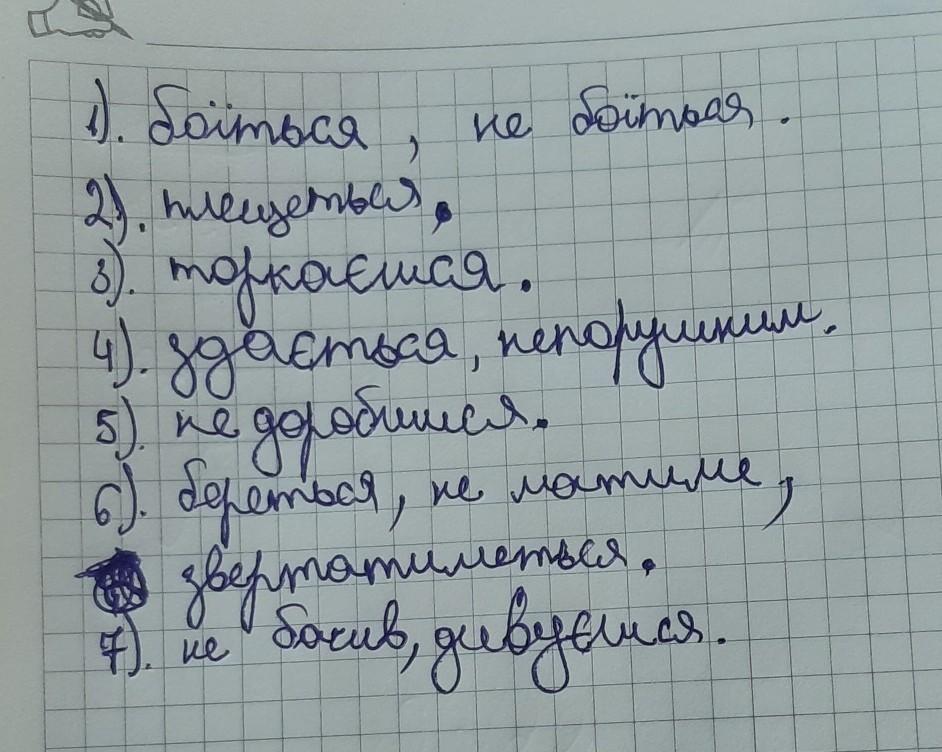 1). боїться, не боїться.
2). плещеться.
3). торкаєшся.
4). здається, непорушним.
5). не доробишся.
6). береться, не матиме,
звертатиметься.
7). не бачив, дивуєшся.